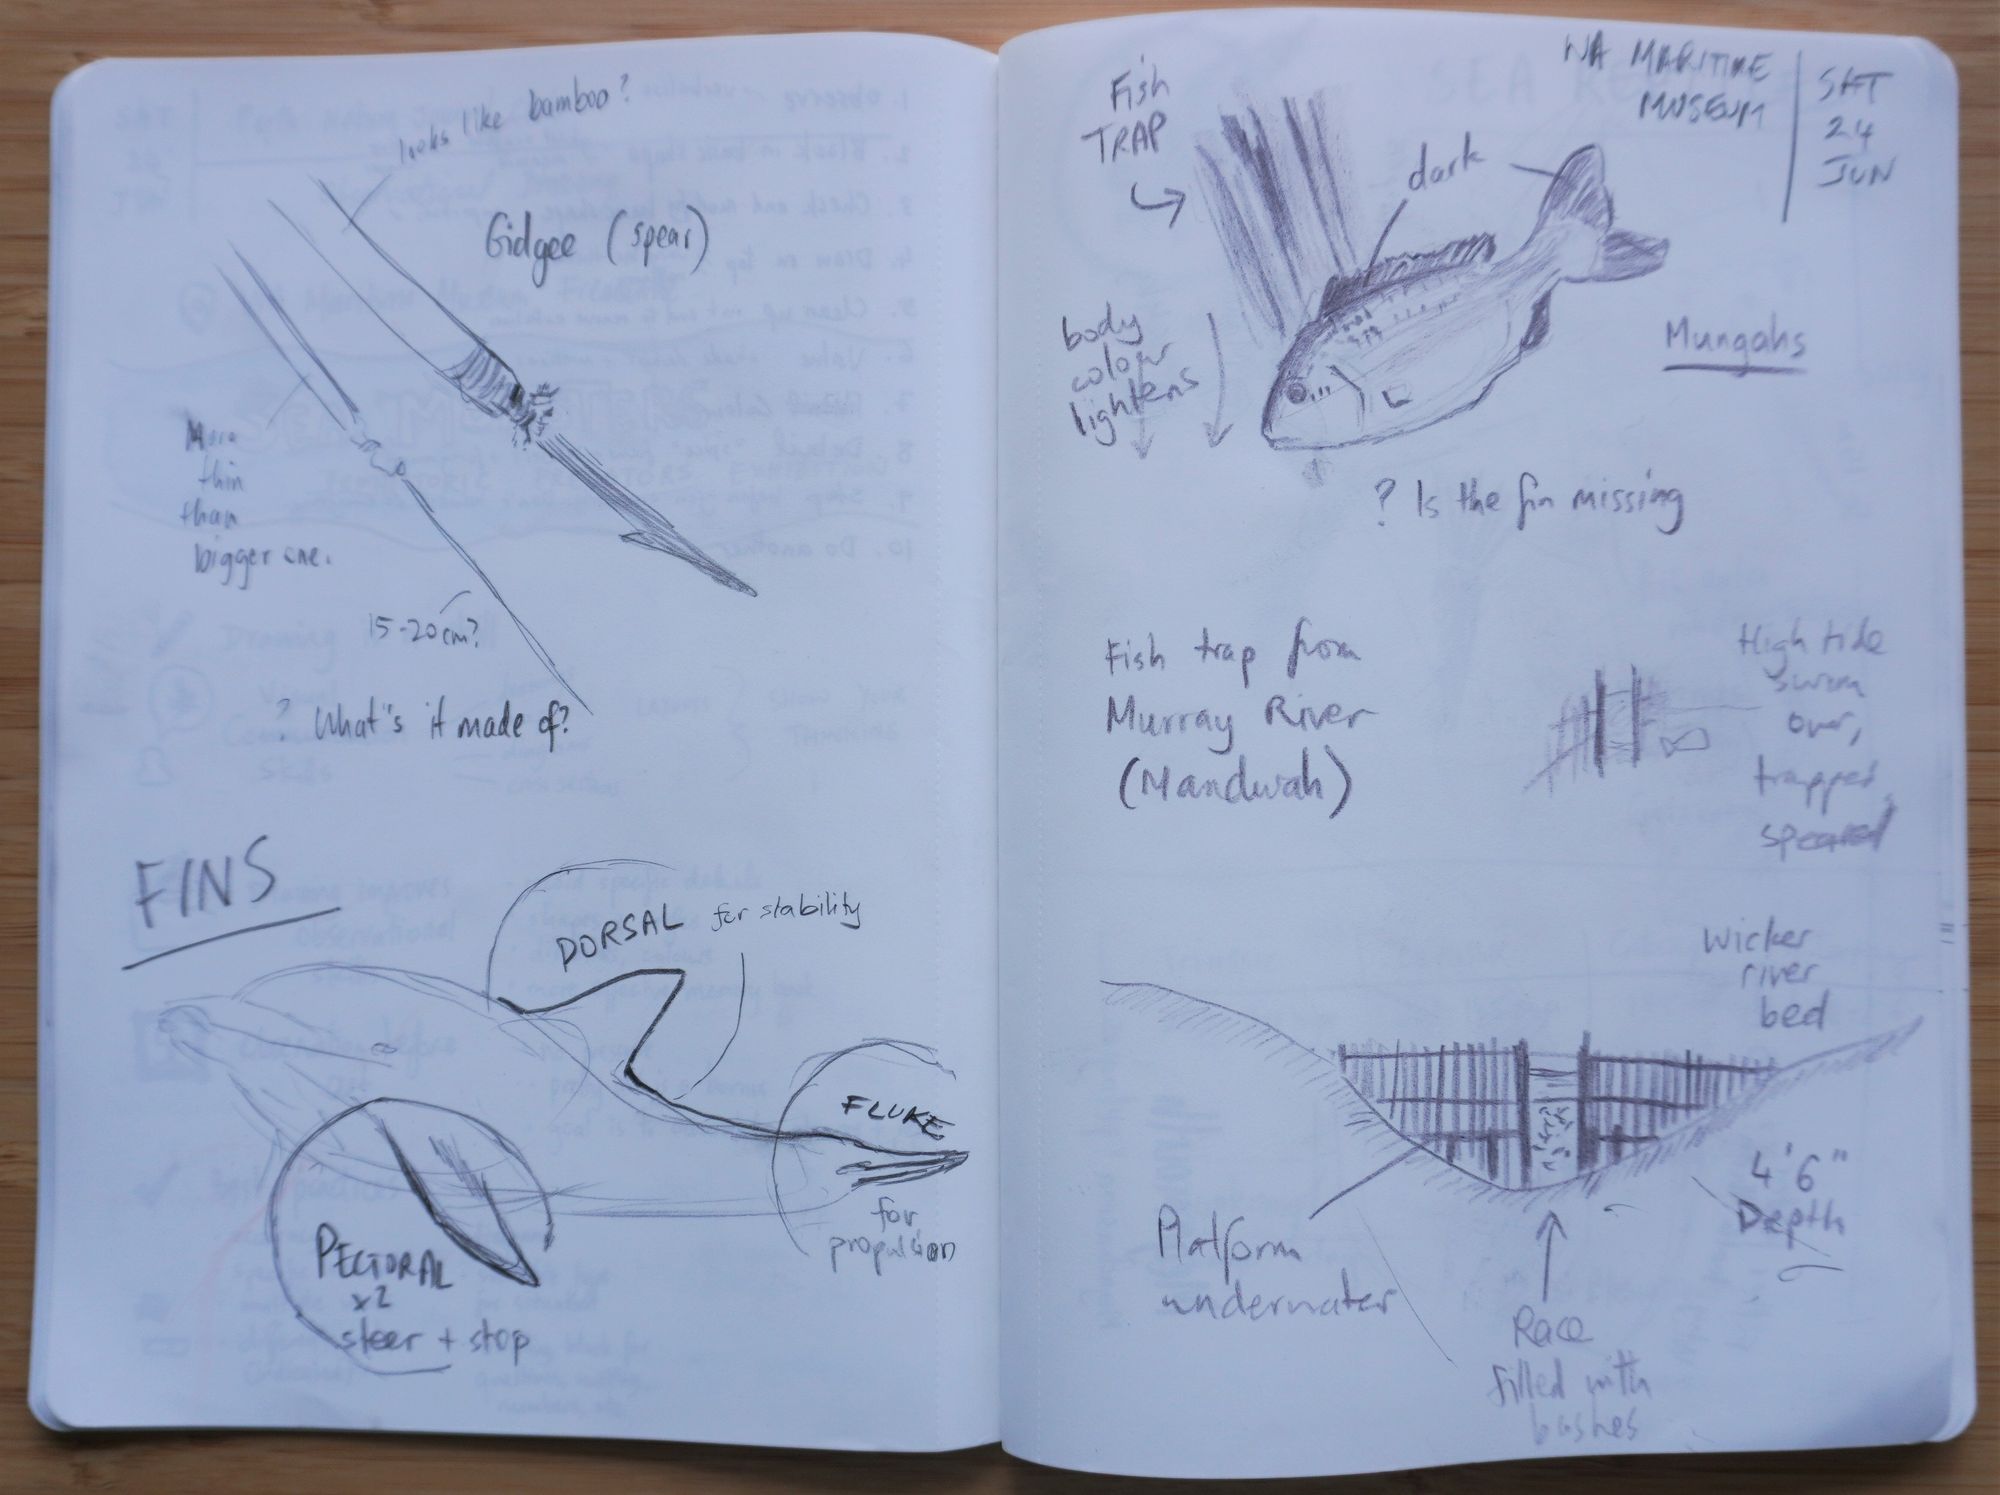 looks like bamboo?
Gidgee (spear)
More
thin
than
bigger one.
15-20cm?
? What's it made of?
FINS
DORSAL for stability
FLUKE
for
propulsion
PECTORAL
x2
steer + stop
WA MARITIME
MUSEUM
SAT
24
JUN
Fish
TRAP
dark
body
colour
lightens
Mungahs
? Is the fin missing
Fish trap from
Murray River
(Mandurah)
High tide
swim
over,
trapped,
speared
Wicker
river
bed
4'6"
Depth
Platform
underwater
Race
filled with
bushes